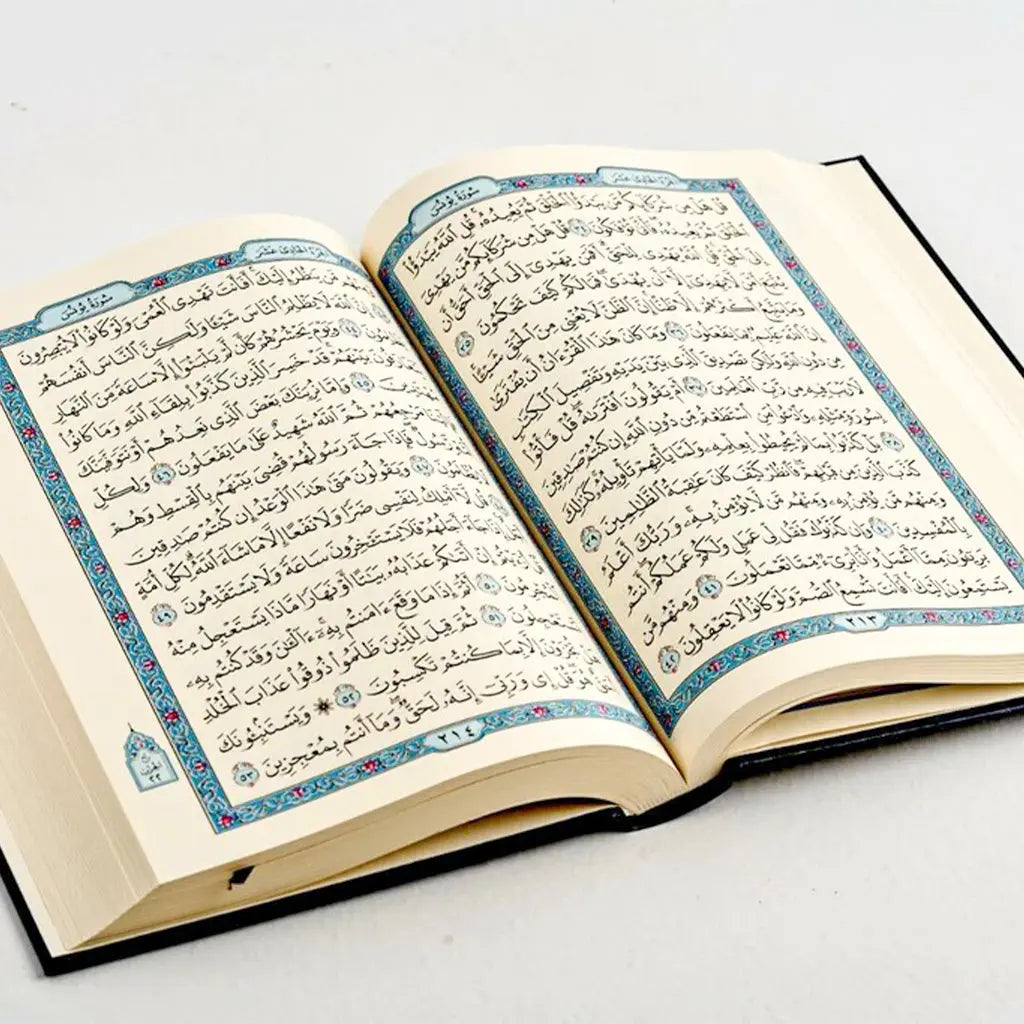 سُورَةُ يُونُسَ
الجُزْءُ الحَادِي عَشَر
قُلْ هَلْ مِن شُرَكَآئِكُم مَّن يَبْدَؤُا۟ ٱلْخَلْقَ ثُمَّ يُعِيدُهُۥ قُلِ ٱللَّهُ يَبْدَؤُا۟
ٱلْخَلْقَ ثُمَّ يُعِيدُهُۥ فَأَنَّىٰ تُؤْفَكُونَ ٣٤ قُلْ هَلْ مِن شُرَكَآئِكُم مَّن يَهْدِىٓ
إِلَى ٱلْحَقِّ قُلِ ٱللَّهُ يَهْدِى لِلْحَقِّ أَفَمَن يَهْدِىٓ إِلَى ٱلْحَقِّ أَحَقُّ أَن
يُتَّبَعَ أَمَّن لَّا يَهِدِّىٓ إِلَّآ أَن يُهْدَىٰ فَمَا لَكُمْ كَيْفَ تَحْكُمُونَ ٣٥
وَمَا يَتَّبِعُ أَكْثَرُهُمْ إِلَّا ظَنًّا إِنَّ ٱلظَّنَّ لَا يُغْنِى مِنَ ٱلْحَقِّ شَيْـًٔا
إِنَّ ٱللَّهَ عَلِيمٌۢ بِمَا يَفْعَلُونَ ٣٦ وَمَا كَانَ هَٰذَا ٱلْقُرْءَانُ أَن يُفْتَرَىٰ
مِن دُونِ ٱللَّهِ وَلَٰكِن تَصْدِيقَ ٱلَّذِى بَيْنَ يَدَيْهِ وَتَفْصِيلَ ٱلْكِتَٰبِ
لَا رَيْبَ فِيهِ مِن رَّبِّ ٱلْعَٰلَمِينَ ٣٧ أَمْ يَقُولُونَ ٱفْتَرَىٰهُ قُلْ فَأْتُوا۟
بِسُورَةٍ مِّثْلِهِۦ وَٱدْعُوا۟ مَنِ ٱسْتَطَعْتُم مِّن دُونِ ٱللَّهِ إِن كُنتُمْ صَٰدِقِينَ
٣٨ بَلْ كَذَّبُوا۟ بِمَا لَمْ يُحِيطُوا۟ بِعِلْمِهِۦ وَلَمَّا يَأْتِهِمْ تَأْوِيلُهُۥ كَذَٰلِكَ
كَذَّبَ ٱلَّذِينَ مِن قَبْلِهِمْ فَٱنظُرْ كَيْفَ كَانَ عَٰقِبَةُ ٱلظَّٰلِمِينَ ٣٩
وَمِنْهُم مَّن يُؤْمِنُ بِهِۦ وَمِنْهُم مَّن لَّا يُؤْمِنُ بِهِۦ وَرَبُّكَ أَعْلَمُ
بِٱلْمُفْسِدِينَ ٤٠ وَإِن كَذَّبُوكَ فَقُل لِّى عَمَلِى وَلَكُمْ عَمَلُكُمْ أَنتُم
بَرِيٓـُٔونَ مِمَّآ أَعْمَلُ وَأَنَا۠ بَرِىٓءٌ مِّمَّا تَعْمَلُونَ ٤١ وَمِنْهُم مَّن
يَسْتَمِعُونَ إِلَيْكَ أَفَأَنتَ تُسْمِعُ ٱلصُّمَّ وَلَوْ كَانُوا۟ لَا يَعْقِلُونَ ٤٢
٢١٣
الجُزْءُ الحَادِي عَشَر
سُورَةُ يُونُسَ
مَّن يَنظُرُ إِلَيْكَ أَفَأَنتَ تَهْدِى ٱلْعُمْىَ وَلَوْ كَانُوا۟ لَا يُبْصِرُونَ
ٱللَّهَ لَا يَظْلِمُ ٱلنَّاسَ شَيْـًٔا وَلَٰكِنَّ ٱلنَّاسَ أَنفُسَهُمْ
٤٤ وَيَوْمَ يَحْشُرُهُمْ كَأَن لَّمْ يَلْبَثُوٓا۟ إِلَّا سَاعَةً مِّنَ ٱلنَّهَارِ
بَيْنَهُمْ قَدْ خَسِرَ ٱلَّذِينَ كَذَّبُوا۟ بِلِقَآءِ ٱللَّهِ وَمَا كَانُوا۟
٤٥ وَإِمَّا نُرِيَنَّكَ بَعْضَ ٱلَّذِى نَعِدُهُمْ أَوْ نَتَوَفَّيَنَّكَ
مَرْجِعُهُمْ ثُمَّ ٱللَّهُ شَهِيدٌ عَلَىٰ مَا يَفْعَلُونَ ٤٦ وَلِكُلِّ
رَّسُولٌ فَإِذَا جَآءَ رَسُولُهُمْ قُضِىَ بَيْنَهُم بِٱلْقِسْطِ وَهُمْ
٤٧ وَيَقُولُونَ مَتَىٰ هَٰذَا ٱلْوَعْدُ إِن كُنتُمْ صَٰدِقِينَ
لَّآ أَمْلِكُ لِنَفْسِى ضَرًّا وَلَا نَفْعًا إِلَّا مَا شَآءَ ٱللَّهُ لِكُلِّ أُمَّةٍ
أَجَلُهُمْ فَلَا يَسْتَـْٔخِرُونَ سَاعَةً وَلَا يَسْتَقْدِمُونَ ٤٩
إِنْ أَتَىٰكُمْ عَذَابُهُۥ بَيَٰتًا أَوْ نَهَارًا مَّاذَا يَسْتَعْجِلُ مِنْهُ
٥٠ أَثُمَّ إِذَا مَا وَقَعَ ءَامَنتُم بِهِۦٓ ءَآلْـَٰٔنَ وَقَدْ كُنتُم بِهِۦ
تَسْتَعْجِلُونَ ٥١ ثُمَّ قِيلَ لِلَّذِينَ ظَلَمُوا۟ ذُوقُوا۟ عَذَابَ ٱلْخُلْدِ
هَلْ تُجْزَوْنَ إِلَّا بِمَا كُنتُمْ تَكْسِبُونَ ٥٢ ۞ وَيَسْتَنۢبِـُٔونَكَ
أَحَقٌّ هُوَ قُلْ إِى وَرَبِّىٓ إِنَّهُۥ لَحَقٌّ وَمَآ أَنتُم بِمُعْجِزِينَ ٥٣
٢١٤
الحزب
٢٢